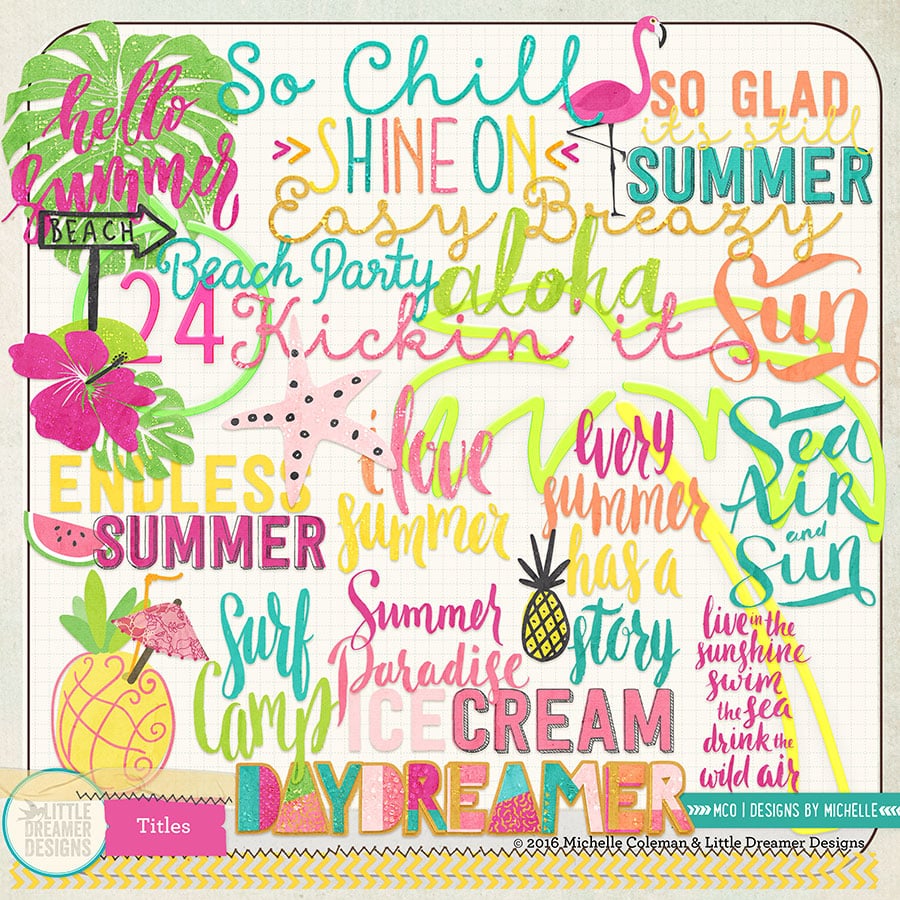 hello
summer
BEACH
So Chill
SHINE ON
Easy Breazy
SO GLAD
it's still
SUMMER
Beach Party
aloha
24
Kickin it
Sun
ENDLESS
SUMMER
i love
summer
every
summer
has a
story
Sea
Air
and
Sun
Surf
Camp
Summer
Paradise
ICE CREAM
live in the
sunshine
swim
the sea
drink the
wild air
DAYDREAMER
LITTLE
DREAMER
DESIGNS
Titles
MCO | DESIGNS BY MICHELLE
© 2016 Michelle Coleman & Little Dreamer Designs